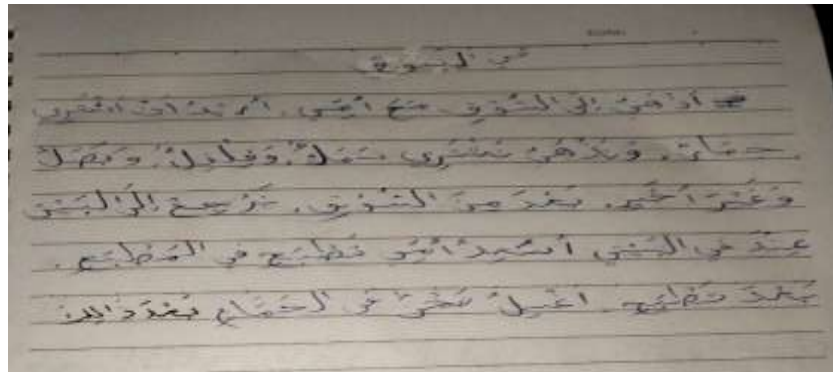 في السوق
أذهب إلى السُّوقِ مَعَ أُمِّي. أُرِيْدُ أَنْ أَشْتَرِي
وَنَذْهَبُ نَشْتَرِي سَمَكٌ، وَفُلْفُلٌ، وَبَصَلٌ
وَغَيْرَ أَخَير. بَعْدَ مِنَ السُّوْقِ، نَرْجِعُ إِلَى الْبَيْتِ
عِنْدَ فِي الْبَيْتِ أُسَعِدُ أُمِّي تَطْبَخ فِي الْمَطْبَخِ.
بَعْدَ تَطْبَخ. أَغْسِلُ فِي الْحَمَّامِ بَعْدَ ذَالِكَ